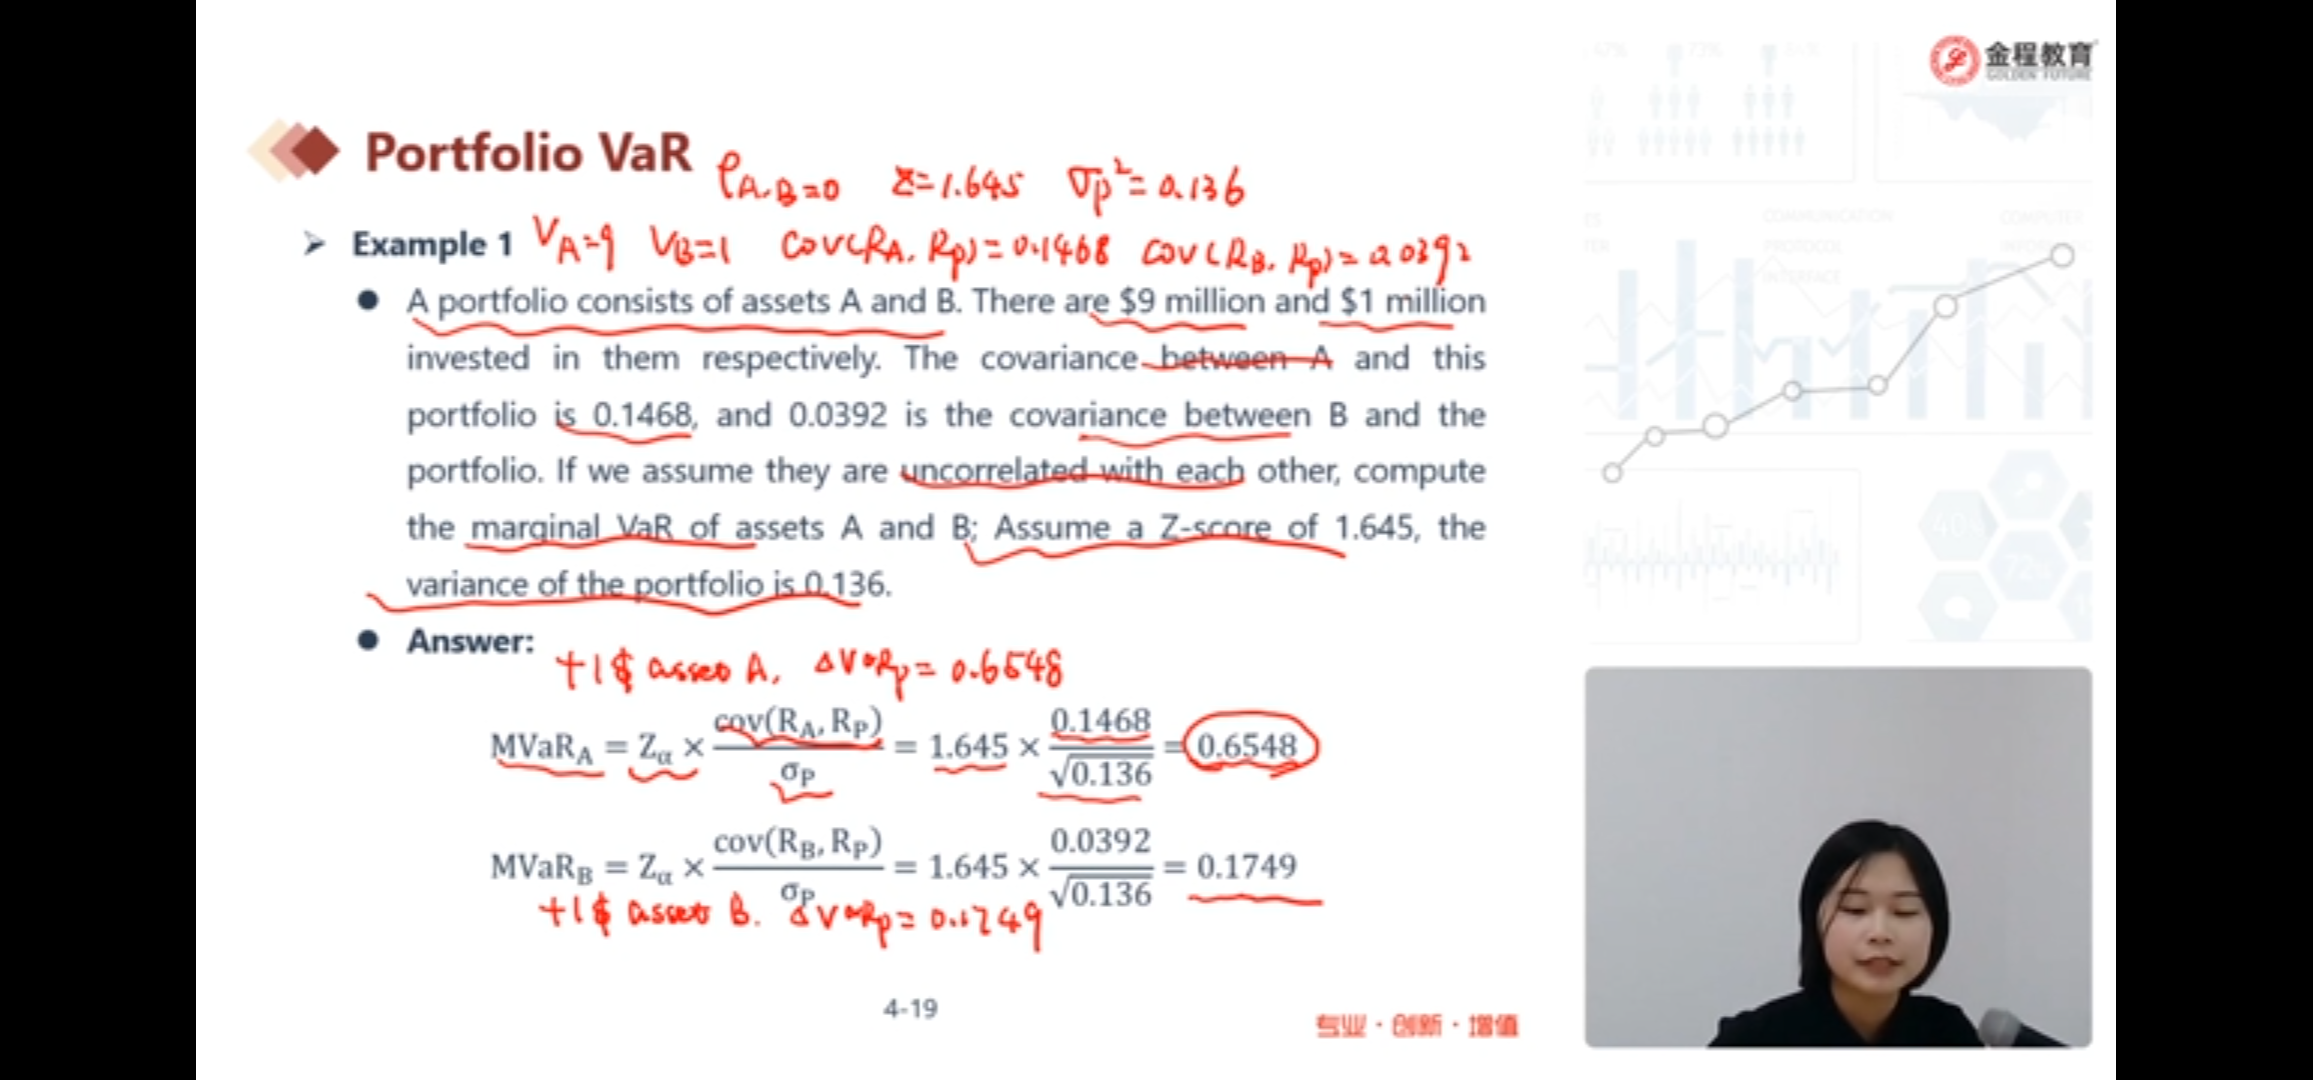 金程教育
GOLDEN FUTURE
Portfolio VaR
ρA,B=0 Z=1.645 σp²=0.136
Example 1
VA=9 VB=1 COV(RA, Rp)=0.1468 COV(RB, Rp)=0.0392
A portfolio consists of assets A and B. There are $9 million and $1 million
invested in them respectively. The covariance between A and this
portfolio is 0.1468, and 0.0392 is the covariance between B and the
portfolio. If we assume they are uncorrelated with each other, compute
the marginal VaR of assets A and B; Assume a Z-score of 1.645, the
variance of the portfolio is 0.136.
Answer:
+1$ asset A, ΔVaRp=0.6548
MVaR_A = Z_α × cov(R_A, R_P) / σ_P = 1.645 × 0.1468 / √0.136 = 0.6548
MVaR_B = Z_α × cov(R_B, R_P) / σ_P = 1.645 × 0.0392 / √0.136 = 0.1749
+1$ asset B. ΔVaRp=0.1749
4-19
专业·创新·增值
COMMUNICATION
PROTOCOL
INTERFACE
COMPUTER
40%
72%